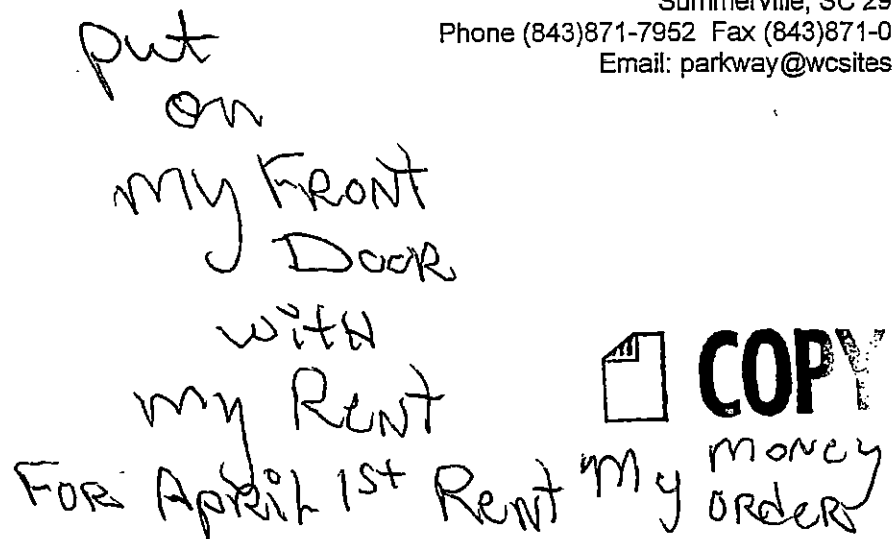 Summerville, SC 29
Phone (843)871-7952 Fax (843)871-0
Email: parkway@wcsites
put
on
my FRONT
DooR
with
my RENT
COPY
FOR April 1st Rent My money
ORdeR